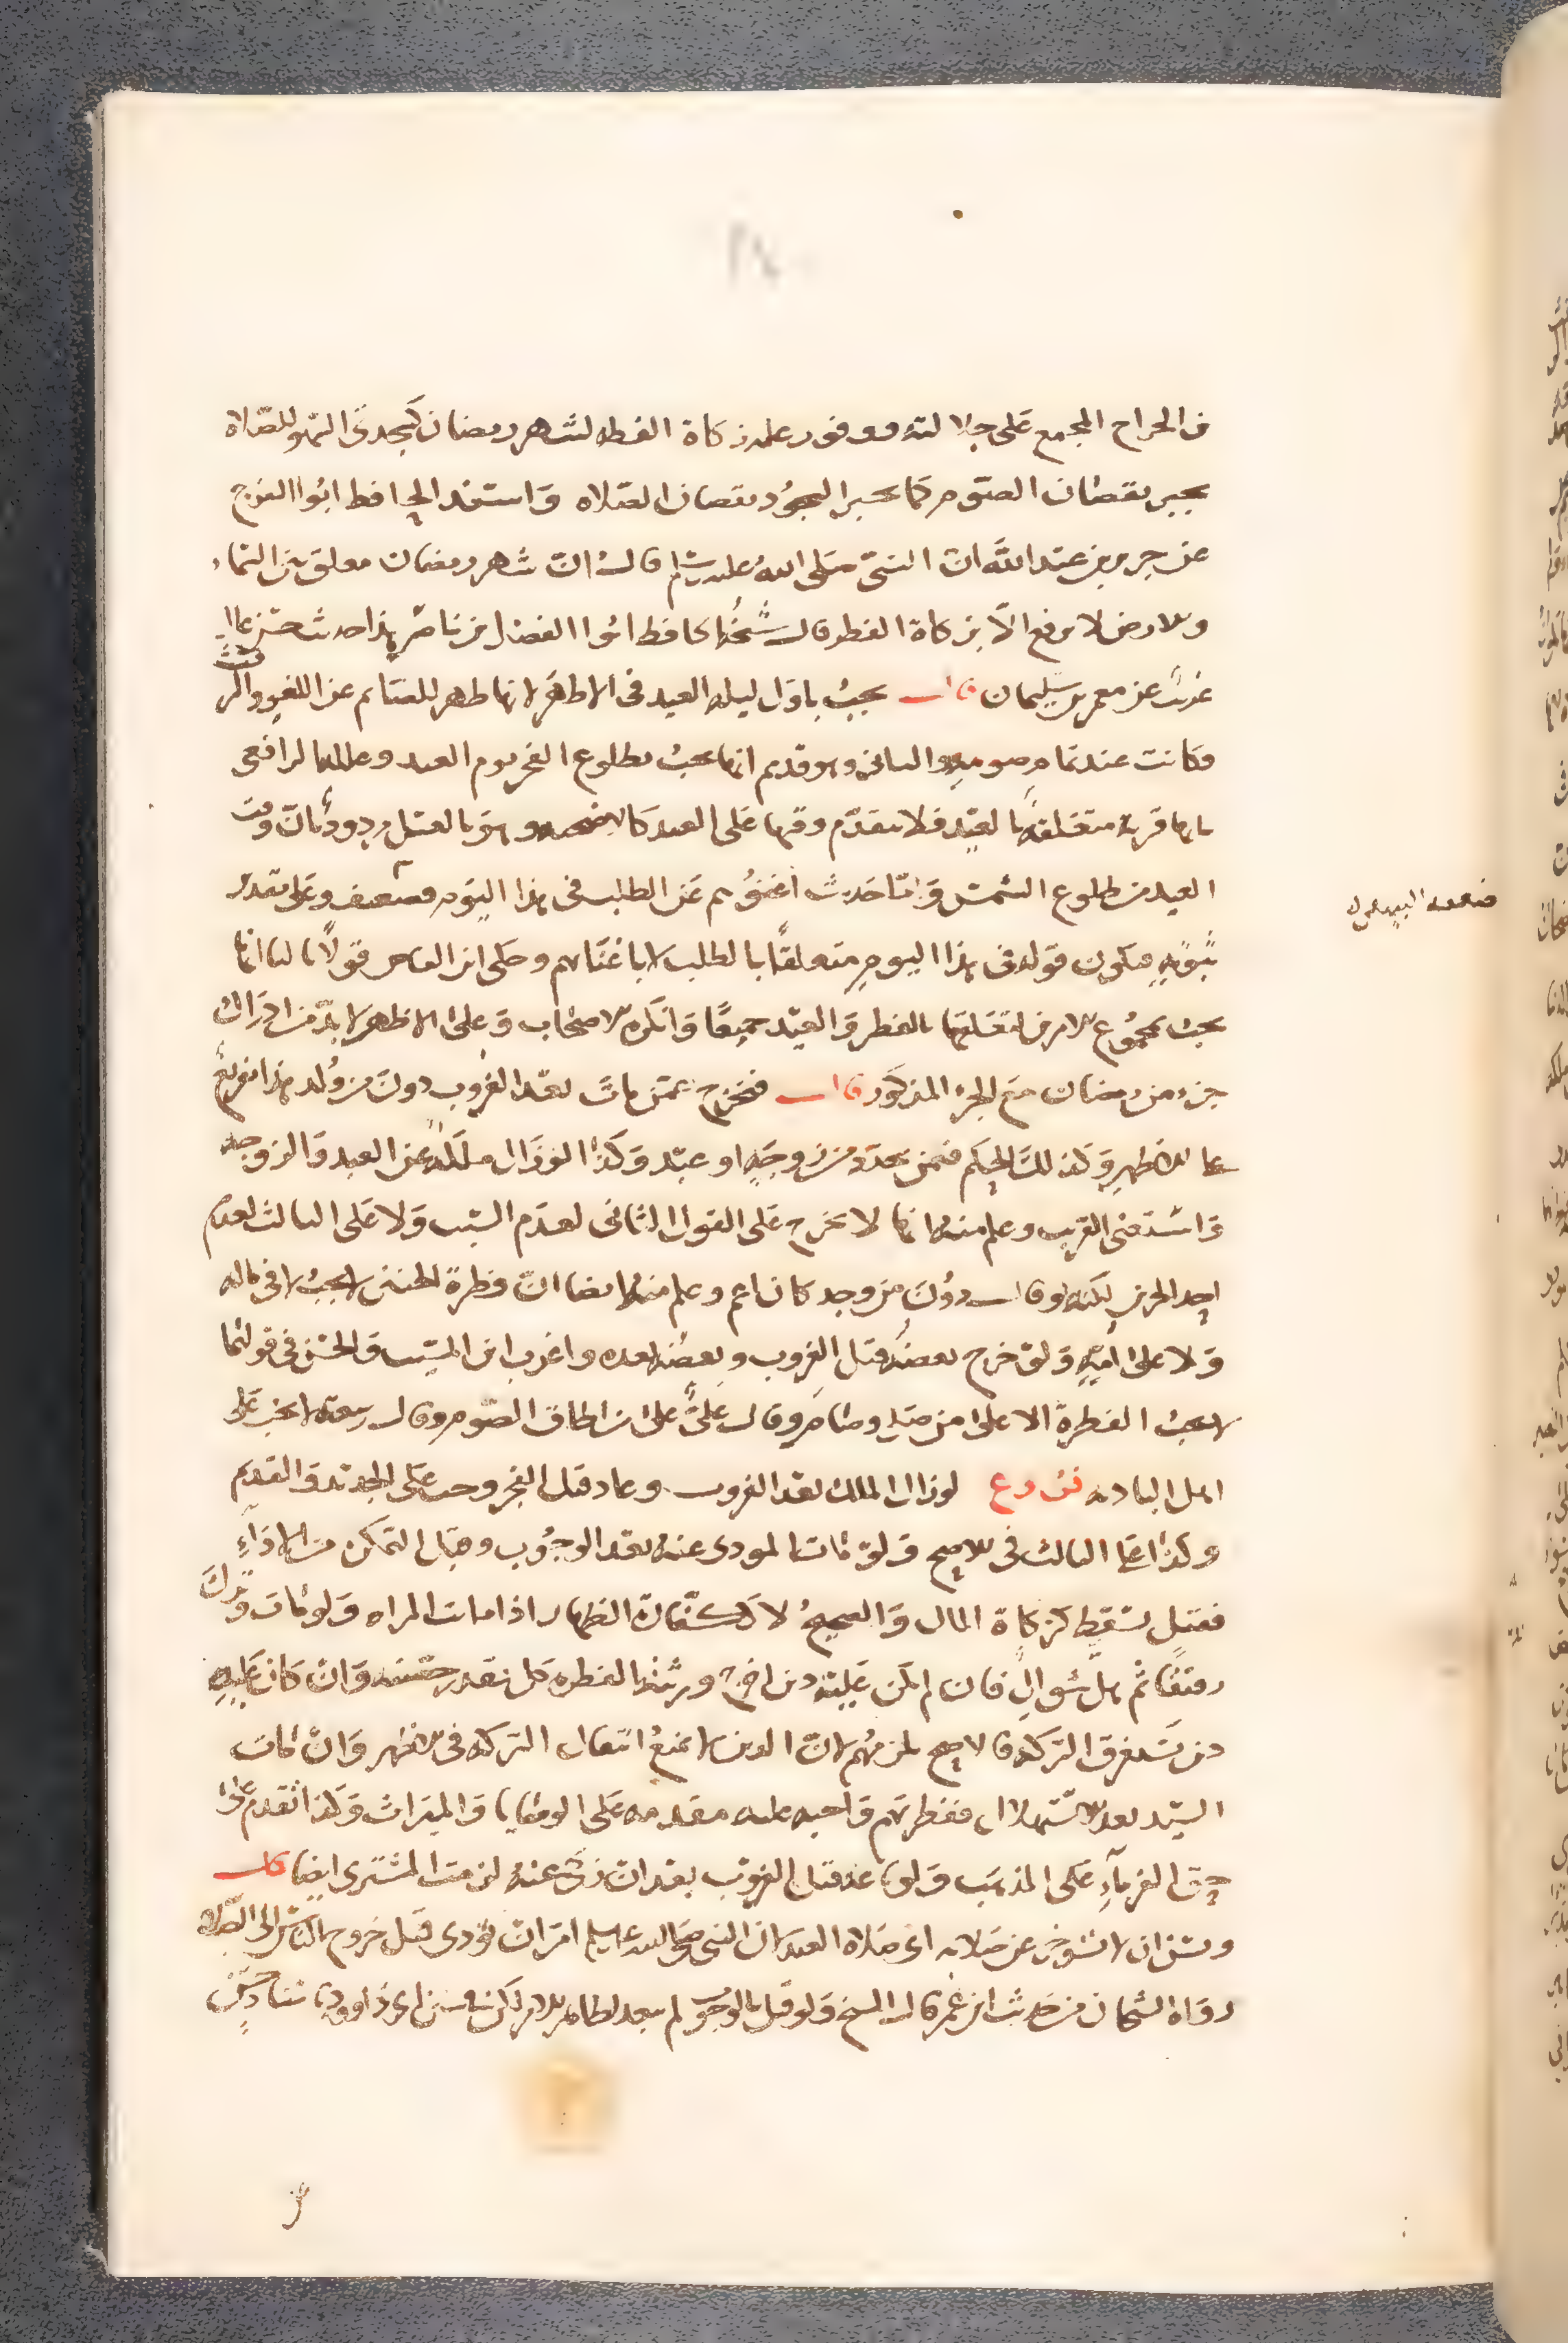 بن الجراح المجمع على جلالته ووفور علمه زكاة الفطر لشهر رمضان كسجدتي السهو للصلاة
تجبر نقصان الصوم كما يجبر السجود نقصان الصلاه واستند الحافظ ابوا الفرج
عن جرير بن عبد الله ان النبي صلى الله عليه وسلم قال ان شهر رمضان معلق بين السماء
والارض لا يرفع الا بزكاة الفطر قال شيخنا الحافظ ابوا الفضل بن ناصر هذا حديث حسن
غريب عن معمر بن سليمان قال تجب باول ليله العيد في الاظهر لانها طهر للصائم عن اللغو والرفث
فكانت عند تمام صومه والثاني وهو قديم انها تجب بطلوع الفجر يوم العيد وعلله الرافعي
بانها قربة متعلقة بالعيد فلا يتقدم وقتها على العيد كالاضحيه وهو بالعسل مردود بان وقت
العيد من طلوع الشمس واما حديث اغنوهم عن الطلب في هذا اليوم فضعيف وعلى تقدير
ضعفه البيهقي
ثبوته فيكون قوله في هذا اليوم متعلقا بالطلب لا باغنائهم وحكى ابن القاص قولا ثالثا انها
تجب بمجموع الامرين لتعلقها بالفطر والعيد جميعا وانكره الاصحاب وعلى الاظهر لا بد من ادراك
جزء من رمضان مع الجزء المذكور قال فتخرج عمن مات بعد الغروب دون من ولد هذا تفريع
على الاظهر وكذلك الحكم فيمن تجدد من زوجة او عبد وكذا لو زال ملكه عن العبد والزوجه
واستغنى القريب وعلم منه انها لا تخرج على القول الثاني لعدم السبب ولا على الثالث لعدم
احد الجزين لكنه لو قال دون من وجد كان اعم وعلم منه ايضا ان فطرة الجنين لا تجب لا في ماله
ولا على ابيه ولو خرج بعضه قبل الغروب وبعضه بعده واغرب ابن المسيب والحسن في قولهما
لا تجب الفطرة الا على من صلى وصام وقال علي على من اطاق الصوم وقال ربيعة لا تجب على
اهل الباديه فروع لو زال الملك بعد الغروب وعاد قبل الفجر وجب على الجديد والقديم
وكذا على الثالث في الاصح ولو مات المودى عنه بعد الوجوب وقبل التمكن من الاداء
فقيل تسقط كزكاة المال والصحيح لا ككفارة الظهار اذا ماتت المراه ولو مات وترك
رقيقا ثم هل شوال فان لم يكن عليه دين اخرج ورثته الفطره كل بقدر حصته وان كان عليه
دين يستغرق التركه فالاصح يلزمهم لان الدين لا يمنع انتقال التركه في الاظهر وان مات
السيد بعد الاستهلال ففطرتهم واجبه عليه مقدمه على الوصايا والميراث وكذا تقدم على
حق الغرماء على المذهب ولو باعه قبل الغروب بعد ان زكى عنه لزمت المشتري ايضا قال
ويسن ان لا تؤخر عن صلاته اي صلاة العيد لان النبي صلى الله عليه وسلم امر ان تؤدى قبل خروج الناس الى الصلاه
رواه الشيخان من حديث ابن عمر قال الشيخ ولو قيل بالوجوب لم يبعد لظاهر الامر لكن في سنن ابي داوود باسناد حسن